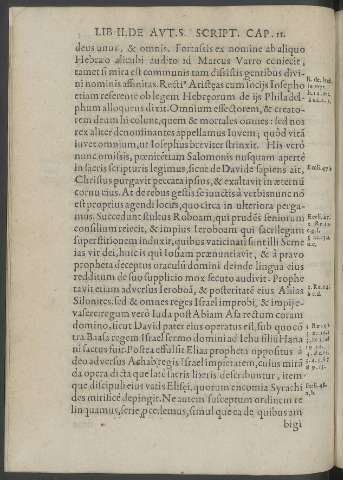 LIB. II. DE AVT. S. SCRIPT. CAP. II.
deus unus, & omnis. Fortassis ex nomine ab aliquo
Hebræo alicubi audito id Marcus Varro coniecit,
tametsi mira est communis tam dissitis gentibus divi-
ni nominis affinitas. Recti° Aristęas cum locis Iosepho
etiam referente ob legem Hebręorum de ijs Philadel-
phum alloquens dixit. Omnium effectorem, & creato-
rem deum hi colunt, quem & mortales omnes: sed nos
rex aliter denominantes appellamus Iovem; quòd vitā
iuvet omnium, ut Iosephus breviter strinxit. His verò
nunc omissis, pœnitētiam Salomonis nusquam apertè
in sacris scripturis legimus, sicut de Davide sapiens ait,
Christus purgavit peccata ipsius, & exaltavit in æternū
cornu eius. At de rebus gestis seiunctis à verbis nunc nō
est proprius agendi locus, quo circa in ulteriora perga-
mus. Succedunt stultus Roboam, qui prudēs seniorum
consilium reiecit, & impius Ieroboam qui sacrilegam
superstitionem induxit, quibus vaticinati sunt illi Seme
ias vir dei, huic is qui Iosiam prænuntiavit, & à pravo
propheta deceptus oraculū domini deinde lingua eius
redditum de suo supplicio mox secuto audivit. Prophe
tavit etiam adversus Ieroboā, & posteritatē eius Ahias
Silonites. sed & omnes reges Israel improbi, & impij e-
vasere regum verò Iuda post Abiam Asa rectum coram
domino, sicut David pater eius operatus est, sub quo cō
tra Baasa regem Israel sermo domini ad Iehu filiū Hana
ni factus fuit. Postea effulsit Elias propheta oppositus à
deo adversus Achab regis Israel impietatem, cuius mirā
da opera dicta que latè sacris libris describuntur, item-
que discipuli eius vatis Elisęi, quorum encomia Syrachi
des mirificè depingit. Ne autem susceptum ordinem re
linquamus, serie pcelemus, simul que ea de quibus am
bigi
Eccli. 47.